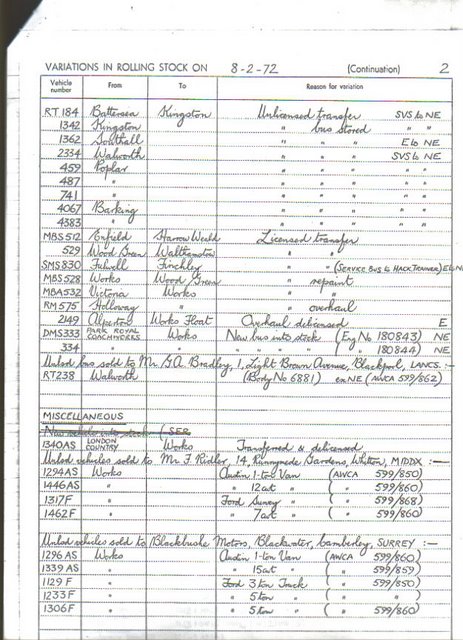 VARIATIONS IN ROLLING STOCK ON 8-2-72 (Continuation) 2
Vehicle number From To Reason for variation
RT 184 Battersea Kingston Unlicensed transfer SVS to NE
1342 Kingston " " bus stored " "
1362 Southall " " " " E to NE
2334 Walworth " " " " SVS to NE
459 Poplar " " " " " "
487 " " " " " " "
741 " " " " " " "
4067 Barking " " " " " "
4383 " " " " " " "
MBS 512 Enfield Harrow Weald Licensed transfer
529 Wood Green Walthamstow " "
SMS 830 Fulwell Finchley " " (SERVICE BUS to HACK TRAINER) E to N
MBS 528 Works Wood Green " repaint
MBA 532 Victoria Works " "
RM 575 Holloway " " overhaul
2149 Alperton Works Float Overhaul delicensed E
DMS 333 PARK ROYAL COACHWORKS Works New bus into stock (Eng No 180843) NE
334 " " " " " " ( " " 180844) NE
Unlicd bus sold to Mr. G.A. Bradley, 1, Light Brown Avenue, Blackpool, LANCS. :—
RT 238 Walworth (Body No 6881) ex NE (AWCA 599/862)
MISCELLANEOUS
1340 AS LONDON COUNTRY Works Transferred & delicensed
Unlicd vehicles sold to Mr. F. Ridler, 14, Runnymede Gardens, Whitton, MIDDX :—
1294 AS Works Austin 1-ton Van (AWCA 599/850)
1446 AS " " 12 cwt " ( " 599/860)
1317 F " Ford Survey " ( " 599/868)
1462 F " " 7 cwt " ( " 599/860)
Unlicd vehicles sold to Blackbushe Motors, Blackwater, Camberley, SURREY :—
1296 AS Works Austin 1-ton Van (AWCA 599/860)
1339 AS " " 15 cwt " ( " 599/859)
1129 F " Ford 3 ton Truck ( " 599/850)
1233 F " " 5 ton " ( " " )
1306 F " " 5 ton " ( " 599/860)